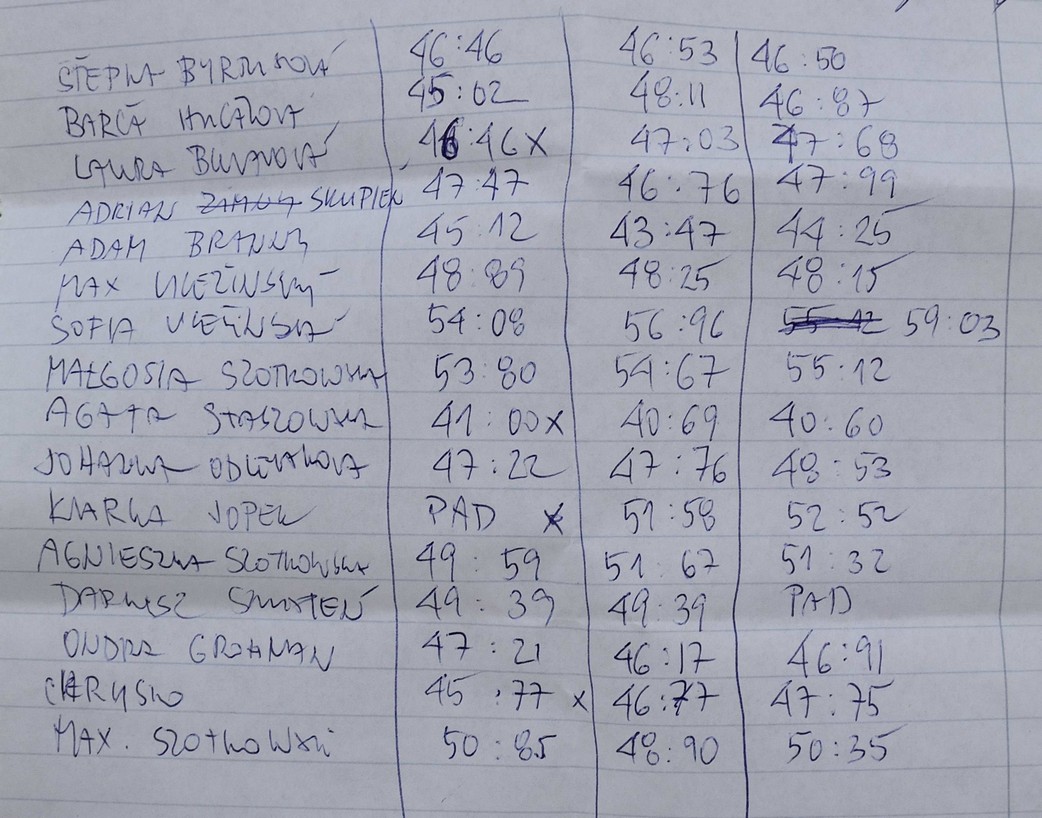 ŠTĚPKA BYRTUSOVÁ 46:46 46:53 46:50
BARČA 45:02 48:11 46:87
LAURA BUJANOVÁ 46:46 X 47:03 47:68
ADRIAN SKUPIEŃ 47:47 46:76 47:99
ADAM BRANNY 45:12 43:47 44:25
MAX 48:89 48:25 48:15
SOFIA 54:08 56:96 55:12 59:03
MAŁGOSIA SZOTKOWSKA 53:80 54:67 55:12
AGATA STASZOWSKA 41:00 X 40:69 40:60
JOHANKA 47:22 47:76 48:53
KLARKA JOPEK PAD X 51:58 52:52
AGNIESZKA SZOTKOWSKA 49:59 51:67 51:32
DARIUSZ SKUPIEŃ 49:39 49:39 PAD
ONDRA GROHMAN 47:21 46:17 46:91
CHRYSKO 45:77 X 46:77 47:75
MAX. SZOTKOWSKI 50:85 48:90 50:35